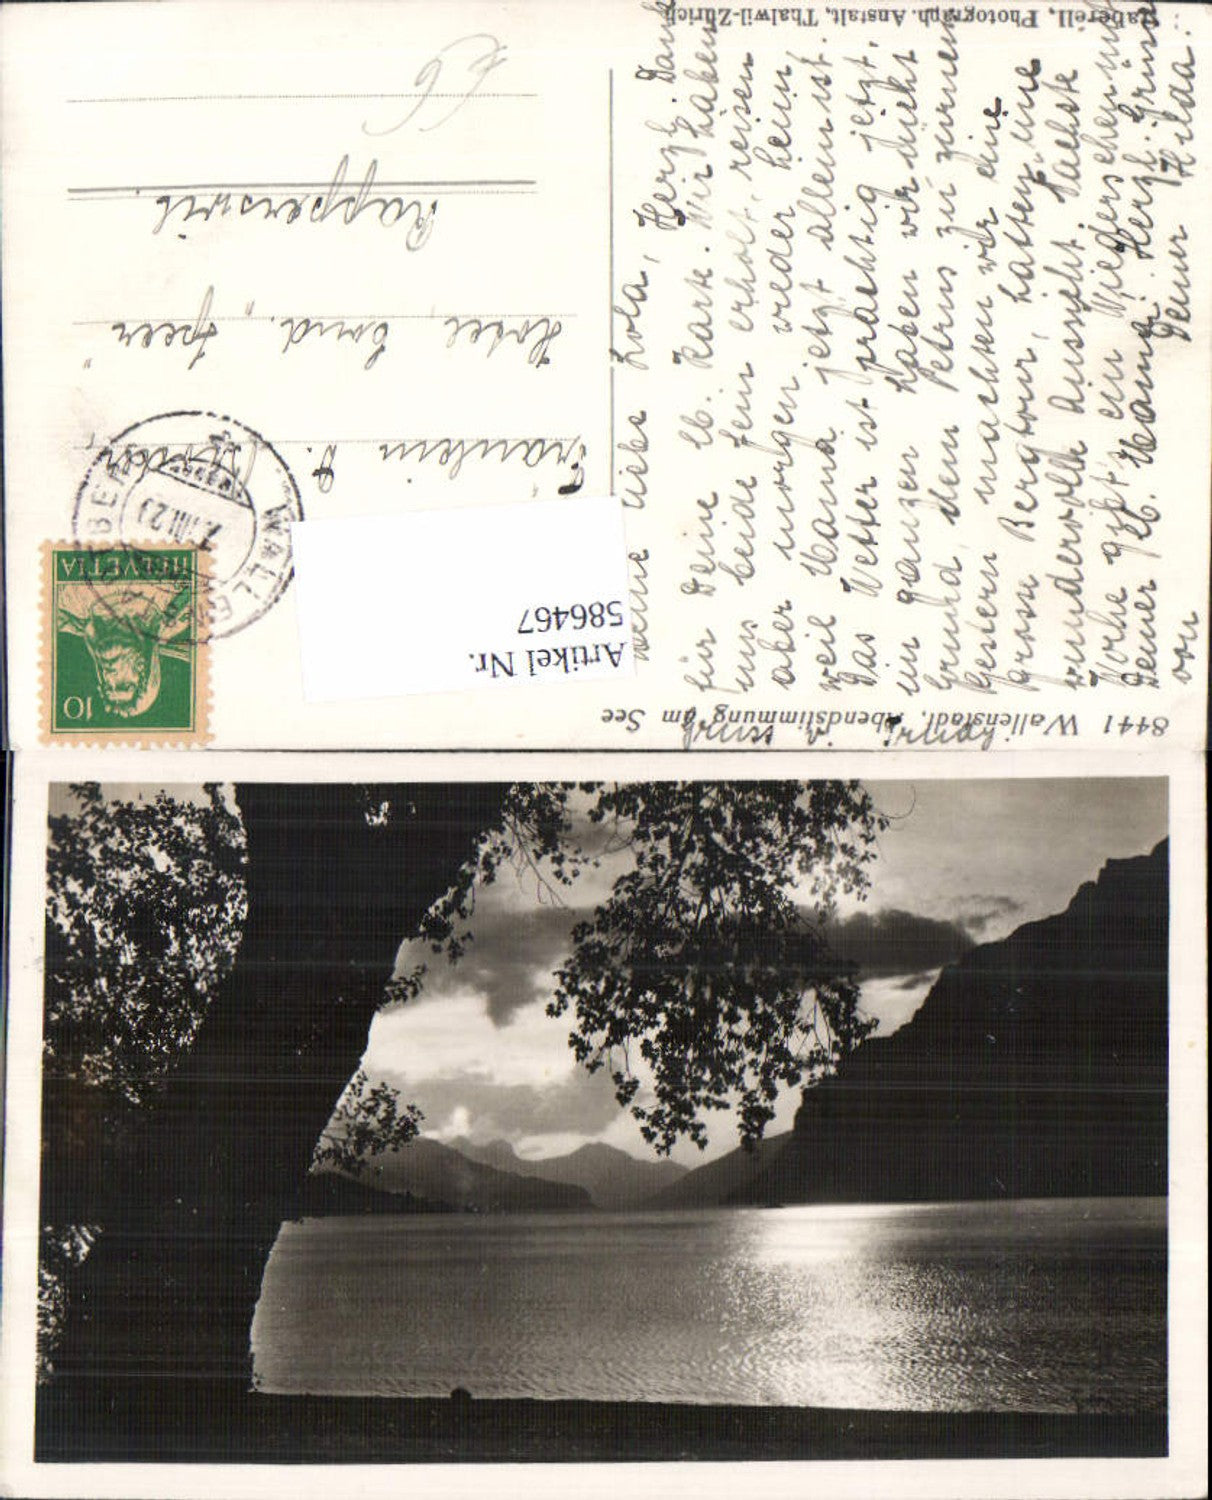 8441 Wallenstadt, Abendstimmung am See
Gruss v. Trudy
Meine liebe Lola, Herzl. Dank
für Deine lb. Karte. Wir haben
uns beide fein erholt, reisen
aber morgen wieder heim,
weil Mama jetzt allein ist.
Das Wetter ist prachtig jetzt,
im ganzen haben wir nicht
Grund, dem Petrus zu zürnen
Gestern machten wir eine
grosse Bergtour, hatten eine
wundervolle Aussicht. Nächste
Woche gibt's ein Wiedersehen mit
Deiner lb. Mama. Herzl. Grüsse
von Deiner Hilda.
Fräulein
Hotel Cond. „Speer"
Rapperswil
€6
HELVETIA
10
WALLENSTADTBERG
Artikel Nr.
586467
Gaberell, Photograph. Anstalt, Thalwil-Zürich